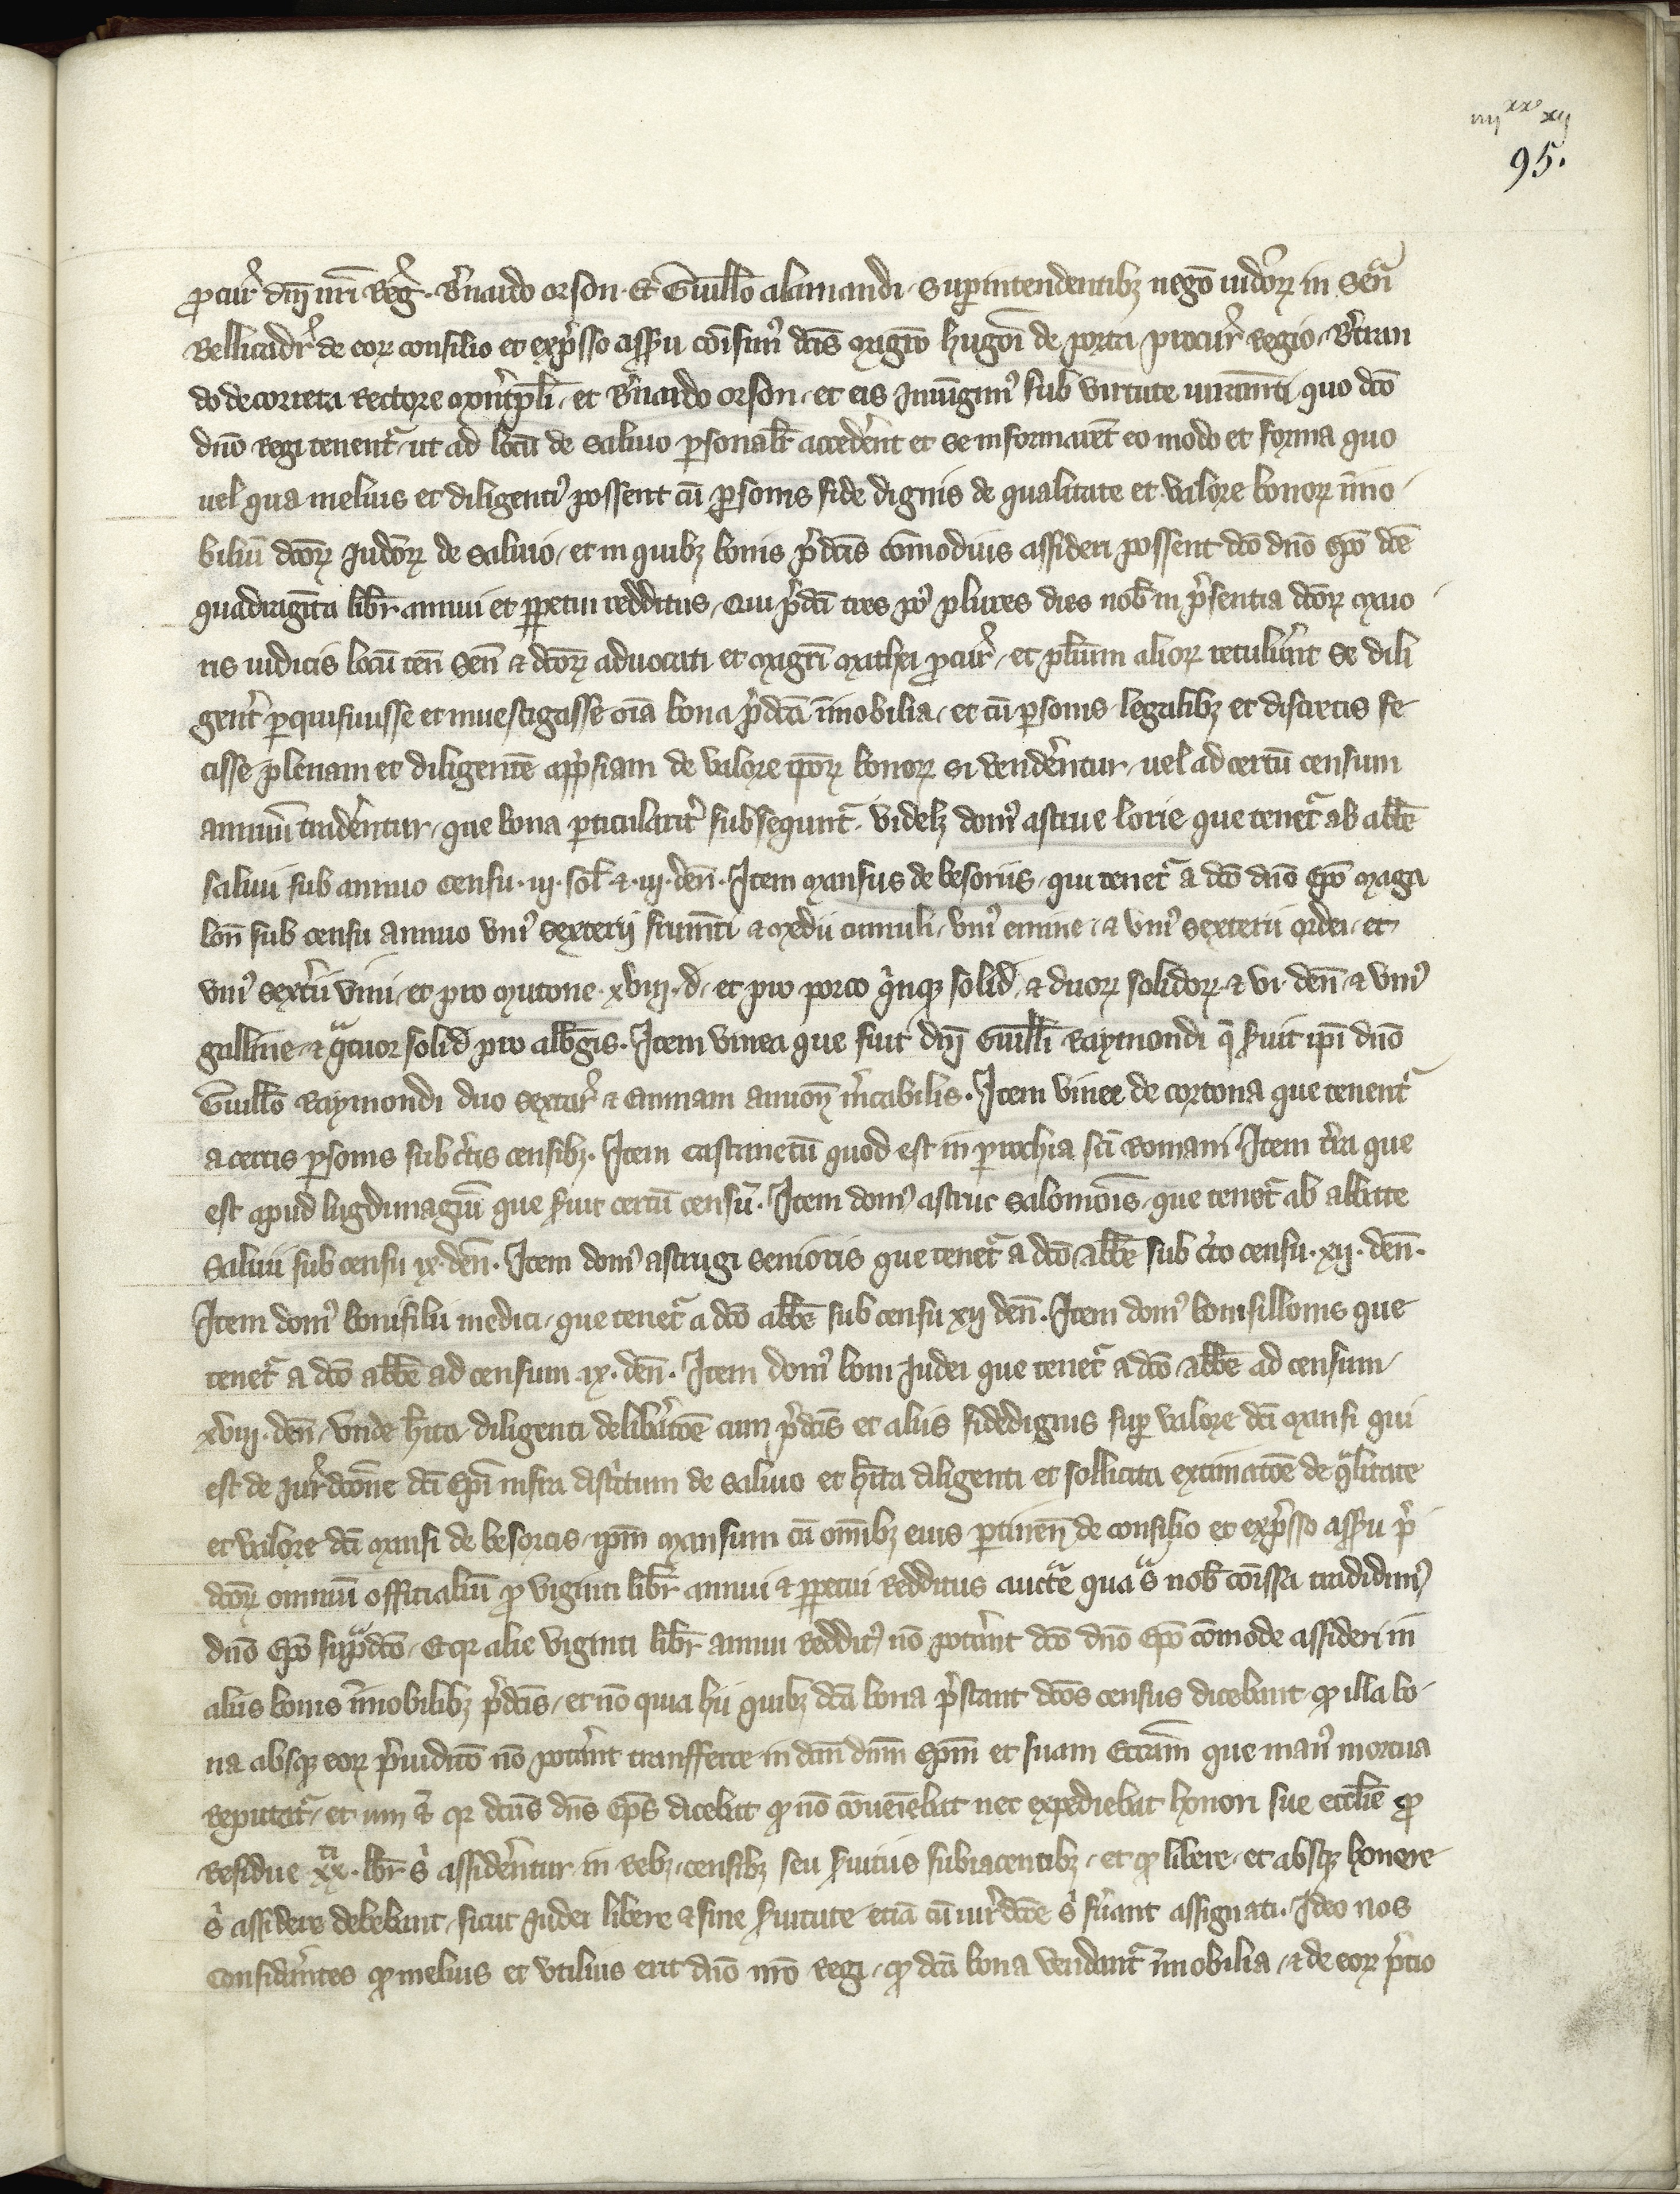 iiijxx xij
95.
ꝓcur̾ dn̄i nr̄i Reg̾ · B̾nardo orson · Et Guill̄o alamandi · Suꝑintendentibꝫ nego᷑ iudeoꝝ in Sen̄
Bellicadr̾ de eoꝝ consilio et exp̾sso assēsu co᷑isim᷒ dc̄is mag̾ro hugoi᷑ de porta procur̾ Regio · B̾tran
do de correta Rectore mōtpl̄i · et B̾nardo orson · et eis iniu᷑gim᷒ sub virtute iuram̄ti quo dc̄o
dn̄o Regi tenent᷑ · ut ad locū de Saluio ꝑsonalr̄ acced̾ent et se informarēt eo modo et forma quo
uel qua melius et diligenti᷒ possent cū ꝑsonis fide dignis de qualitate et valore bonoꝝ īmo
biliū dc̄oꝝ Judeoꝝ de Saluio · et in quibꝫ bonis p̾dc̄is co᷑modius assideri possent dc̄o dn̄o Ep̄o dc̄e
quadraginta libr̄ annui et ꝑpetui redditus · Qui p̾dc̄i tres po᷒ plures dies nob̄ in p̾sentia dc̄oꝝ mao
ris iudicis locū ten̄ Sen̄ ⁊ dc̄oꝝ aduocati et mag̾ri mathei ꝓcur̾ · et pluriū alioꝝ retuler̾nt se dili
gent̾ ꝑquisiuisse et inuestigasse oīa bona p̾dc̄a īmobilia · et cū ꝑsonis legalibꝫ et discretis fe
cisse plenam et diligentē app̾siam de valore ip̄oꝝ bonoꝝ si vend̾entur · uel ad certū censum
annuū trad̾entur · que bona ꝑticularit̾ subsequnt᷑ · videlꝫ dom᷒ astrue lorie que tenet᷑ ab abb̄e
saluii sub annuo censu · iij · sol̄ ⁊ · iij · den̄ · Item mansus de besoriis · qui tenet᷑ a dc̄o dn̄o Ep̄o maga
lon̄ sub censu annuo vni᷒ sexterij frumēti ⁊ medii cumuli · vni᷒ emine · ⁊ vni᷒ sexterii ordei · et
vni᷒ sext̾ii vini · et pro mutone · xviij · d̄ · et pro porco q̾nqꝫ solid̄ · ⁊ duoꝝ solidoꝝ ⁊ vi · den̄ ⁊ vni᷒
galline · ⁊ qͣtuor solid̄ pro alb̾gis · Item vinea que fuit dn̄i Guill̄i Raymondi q̄ s̾uit ip̄i dn̄o
Guill̄o Raymondi duo sextar̾ ⁊ eminam annon̄ m̾cabilis · Item vinee de cortona que tenent᷑
a certis ꝑsonis sub c̾tis censibꝫ · Item castanetū quod est in ꝑrochia sc̄i Romani Item t̾ra que
est apud lugdimagiū que s̾uit certū censū · Item dom᷒ astruc Salomōis · que tenet᷑ ab abbate
Saluii sub censu ix · den̄ · Item dom᷒ astrugi senioris que tenet᷑ a dc̄o abb̄e sub c̾to censu · xij · den̄ ·
Item dom᷒ bonifilii medici · que tenet᷑ a dc̄o abb̄e sub censu xij den̄ · Item dom᷒ bonisillonis que
tenet᷑ a dc̄o abb̄e ad censum · ix · den̄ · Item dom᷒ boni Judei que tenet᷑ a dc̄o abb̄e ad censum
xviij · den̄ · vnde h̄ita diligenti delib̾atōe cum p̾dc̄is et aliis fidedignis suꝑ valore dc̄i mansi qui
est de Jur̾dcōne dc̄i Ep̄i infra dist̾tum de Saluio et h̄ita diligenti et sollicita extimatōe de qͣlitate
et valore dc̄i mansi de besorcis · ip̄m mansum cū om̄ibꝫ eius ꝑtinen̄ de consilio et exp̾sso assēsu p̾
dc̄oꝝ omniū officialiū ꝓ viginti libr̄ annui ⁊ ꝑpetui redditus aucͭe qua Sͣ nob̄ co᷑issa tradidim᷒
dn̄o Ep̄o supͣdc̄o · Et qꝛ alie viginti libr̄ annui reddit᷒ nō pot̾ant dc̄o dn̄o Ep̄o co᷑mode assideri in
aliis bonis īmobilibꝫ p̾dc̄is · et nō quia hii quibꝫ dc̄a bona p̾stant dc̄os census dicebant ꝙ illa bo
na absqꝫ eoꝝ p̾iudicio nō pot̾ant transferre in dc̄m dn̄m Ep̄m et suam Eccl̄iam que man᷒ mortua
reputat᷑ · et tum et̄ qꝛ dc̄us dn̄s Ep̄s dicebat ꝙ nō co᷑ueniebat nec expediebat honori sue eccl̄ie ꝙ
residue xxͭⁱ · libr̄ s̾ assid̾entur in rebꝫ · censibꝫ seu s̾uitiis subiacentibꝫ · et ꝙ libere · et absqꝫ honere
s̾ assidere debebant · sicut Judei libere ⁊ sine s̾uitute etiā cū iur̾dcōe s̾ fu̾ant assignati · Ideo nos
considerantes ꝙ melius et vtilius erit dn̄o nr̄o Regi · ꝙ dc̄a bona vendant᷑ īmobilia · ⁊ de eoꝝ p̾cio